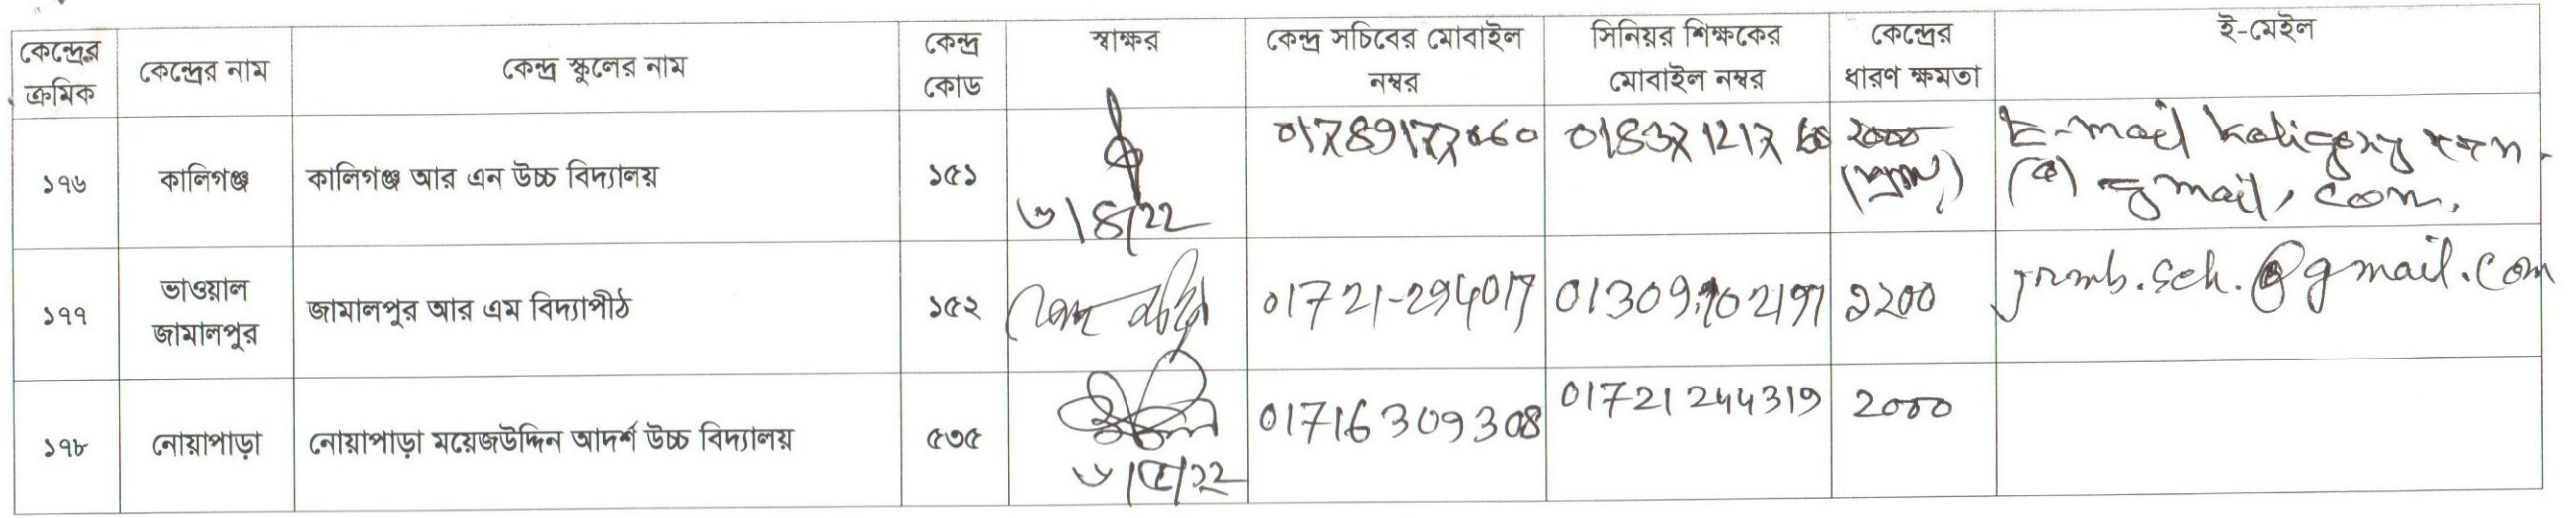 কেন্দ্রের ক্রমিক	কেন্দ্রের নাম	কেন্দ্র স্কুলের নাম	কেন্দ্র কোড	স্বাক্ষর	কেন্দ্র সচিবের মোবাইল নম্বর	সিনিয়র শিক্ষকের মোবাইল নম্বর	কেন্দ্রের ধারণ ক্ষমতা	ই-মেইল
১৭৬	কালিগঞ্জ	কালিগঞ্জ আর এন উচ্চ বিদ্যালয়	১৫১	01789177060	2000	E-mail @ gmail, com.
১৭৭	ভাওয়াল জামালপুর	জামালপুর আর এম বিদ্যাপীঠ	১৫২	01721-294017	01309102197	১২00	jrmb.sch.@gmail.com
১৭৮	নোয়াপাড়া	নোয়াপাড়া ময়েজউদ্দিন আদর্শ উচ্চ বিদ্যালয়	৫৩৫	01716309308	01721244319	2000